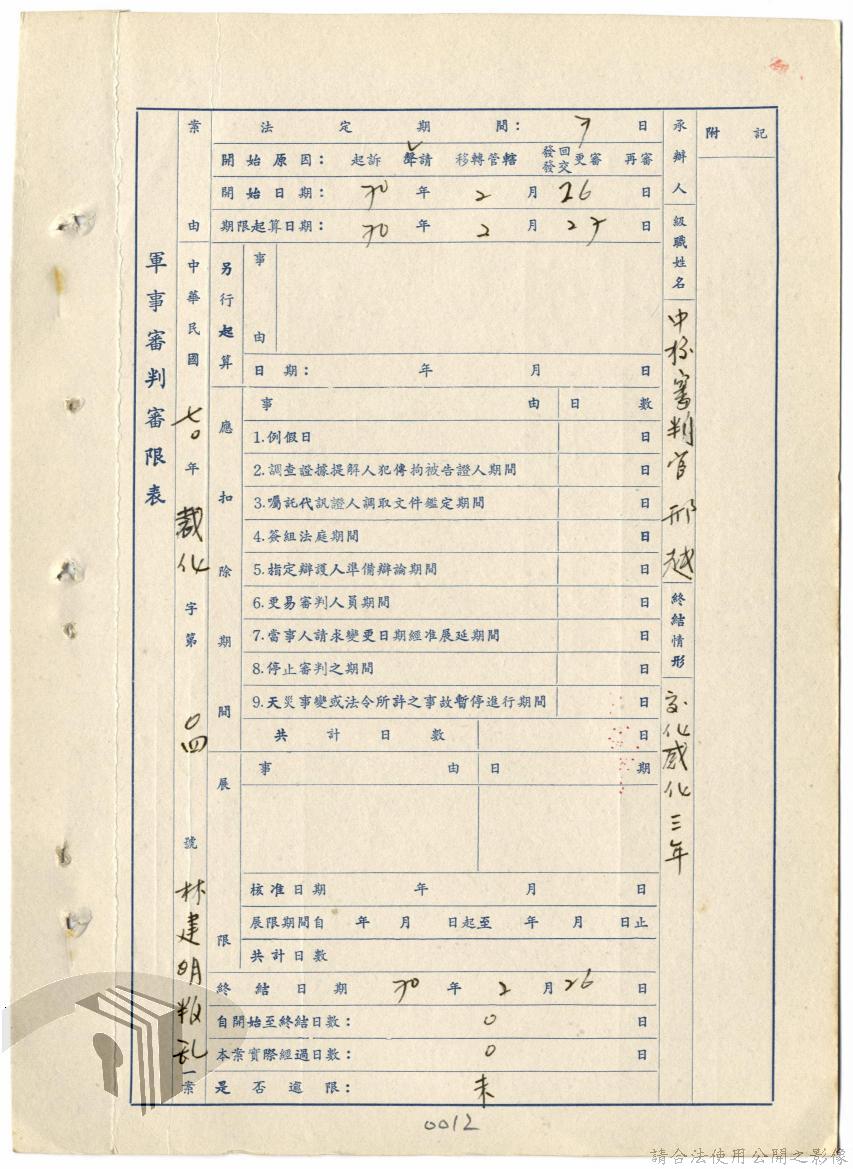 附記
承辦人級職姓名 中校審判官 邢越
終結情形 交付感化三年
案由 中華民國 七〇年 裁化 字第 〇四 號 林建明叛乱一案
軍事審判審限表
法定期間： 7 日
開始原因： 起訴 聲請 移轉管轄 發回發交更審 再審
開始日期： 70 年 2 月 26 日
期限起算日期： 70 年 2 月 27 日
另行起算
事由
日期： 年 月 日
應扣除期間
事由 日數
1.例假日 日
2.調查證據提解人犯傳拘被告證人期間 日
3.囑託代訊證人調取文件鑑定期間 日
4.簽組法庭期間 日
5.指定辯護人準備辯論期間 日
6.更易審判人員期間 日
7.當事人請求變更日期經准展延期間 日
8.停止審判之期間 日
9.天災事變或法令所許之事故暫停進行期間 日
共計日數 日
展限
事由 日期
核准日期 年 月 日
展限期間自 年 月 日起至 年 月 日止
共計日數
終結日期 70 年 2 月 26 日
自開始至終結日數： 0 日
本案實際經過日數： 0 日
是否逾限： 未
0012
請合法使用公開之影像